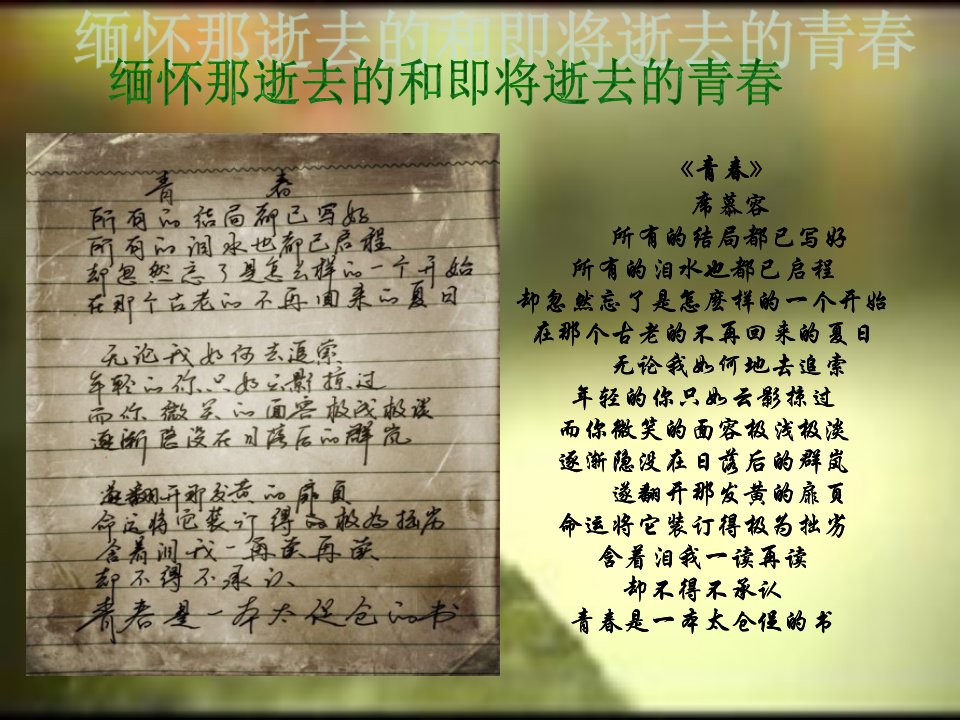 缅怀那逝去的和即将逝去的青春
青 春
所有的结局都已写好
所有的泪水也都已启程
却忽然忘了是怎么样的一个开始
在那个古老的不再回来的夏日
无论我如何去追索
年轻的你只如云影掠过
而你微笑的面容极浅极淡
逐渐隐没在日落后的群岚
遂翻开那发黄的扉页
命运将它装订得极为拙劣
含着泪我一再读再读
却不得不承认
青春是一本太促仓的书
《青春》
席慕容
所有的结局都已写好
所有的泪水也都已启程
却忽然忘了是怎麽样的一个开始
在那个古老的不再回来的夏日
无论我如何地去追索
年轻的你只如云影掠过
而你微笑的面容极浅极淡
逐渐隐没在日落后的群岚
遂翻开那发黄的扉页
命运将它装订得极为拙劣
含着泪我一读再读
却不得不承认
青春是一本太仓促的书